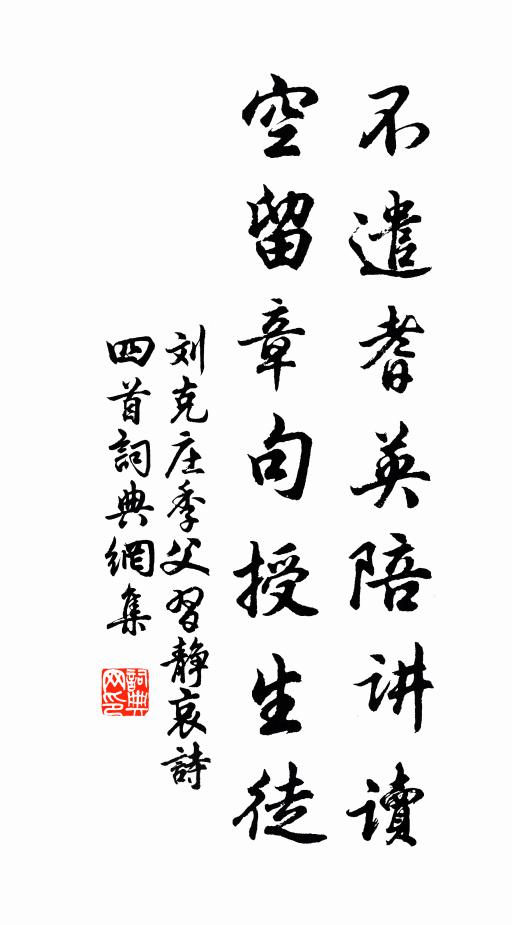 不遣耆英陪讲读
空留章句授生徒
刘克庄季父習静哀詩
四首詞典網集
詞典网印